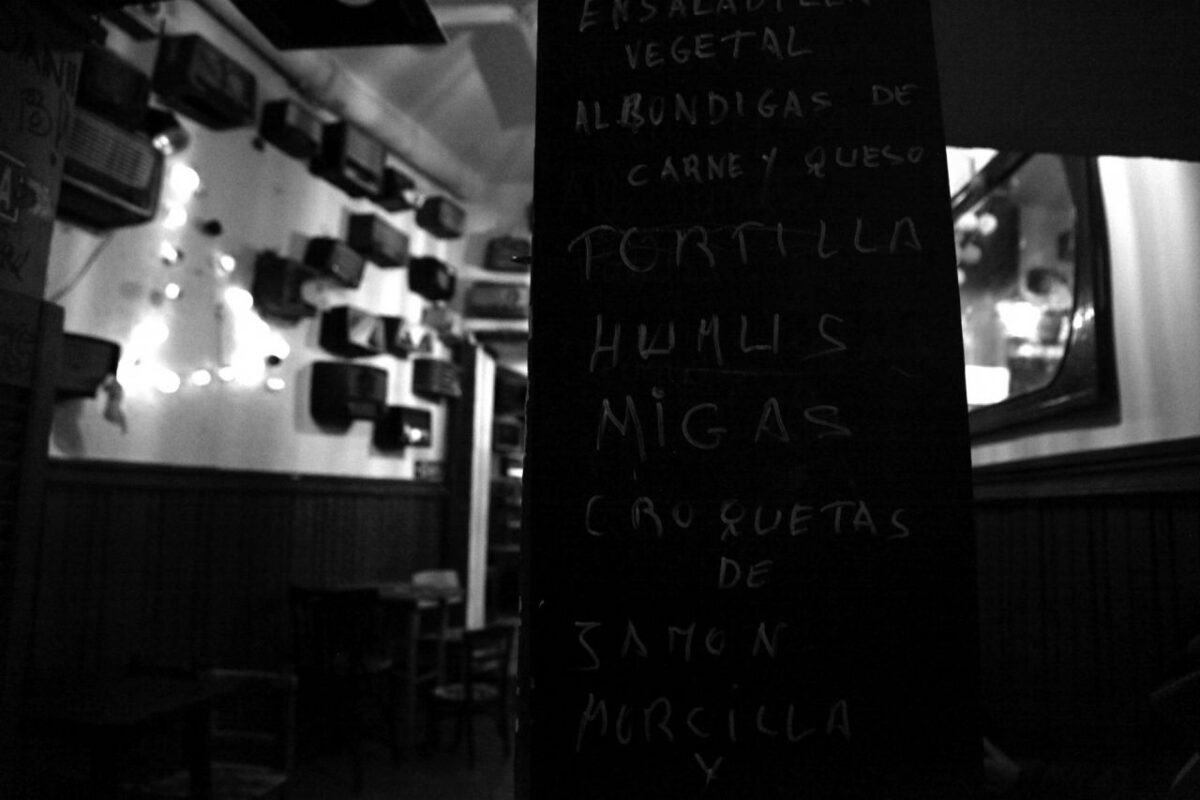 ENSALADILLA
VEGETAL
ALBONDIGAS DE
CARNE Y QUESO
TORTILLA
HUMUS
MiGAS
CROQUETAS
DE
JAMON
MORCiLLA
Y